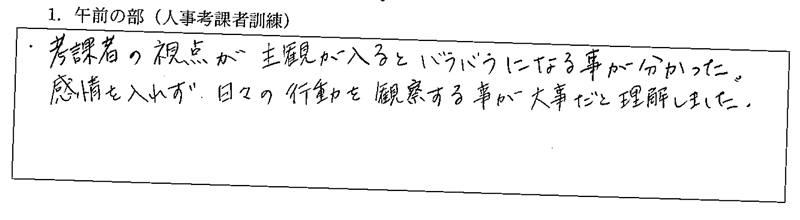 1. 午前の部（人事考課者訓練）
・考課者の視点が主観が入るとバラバラになる事が分かった。
感情を入れず、日々の行動を観察する事が大事だと理解しました。